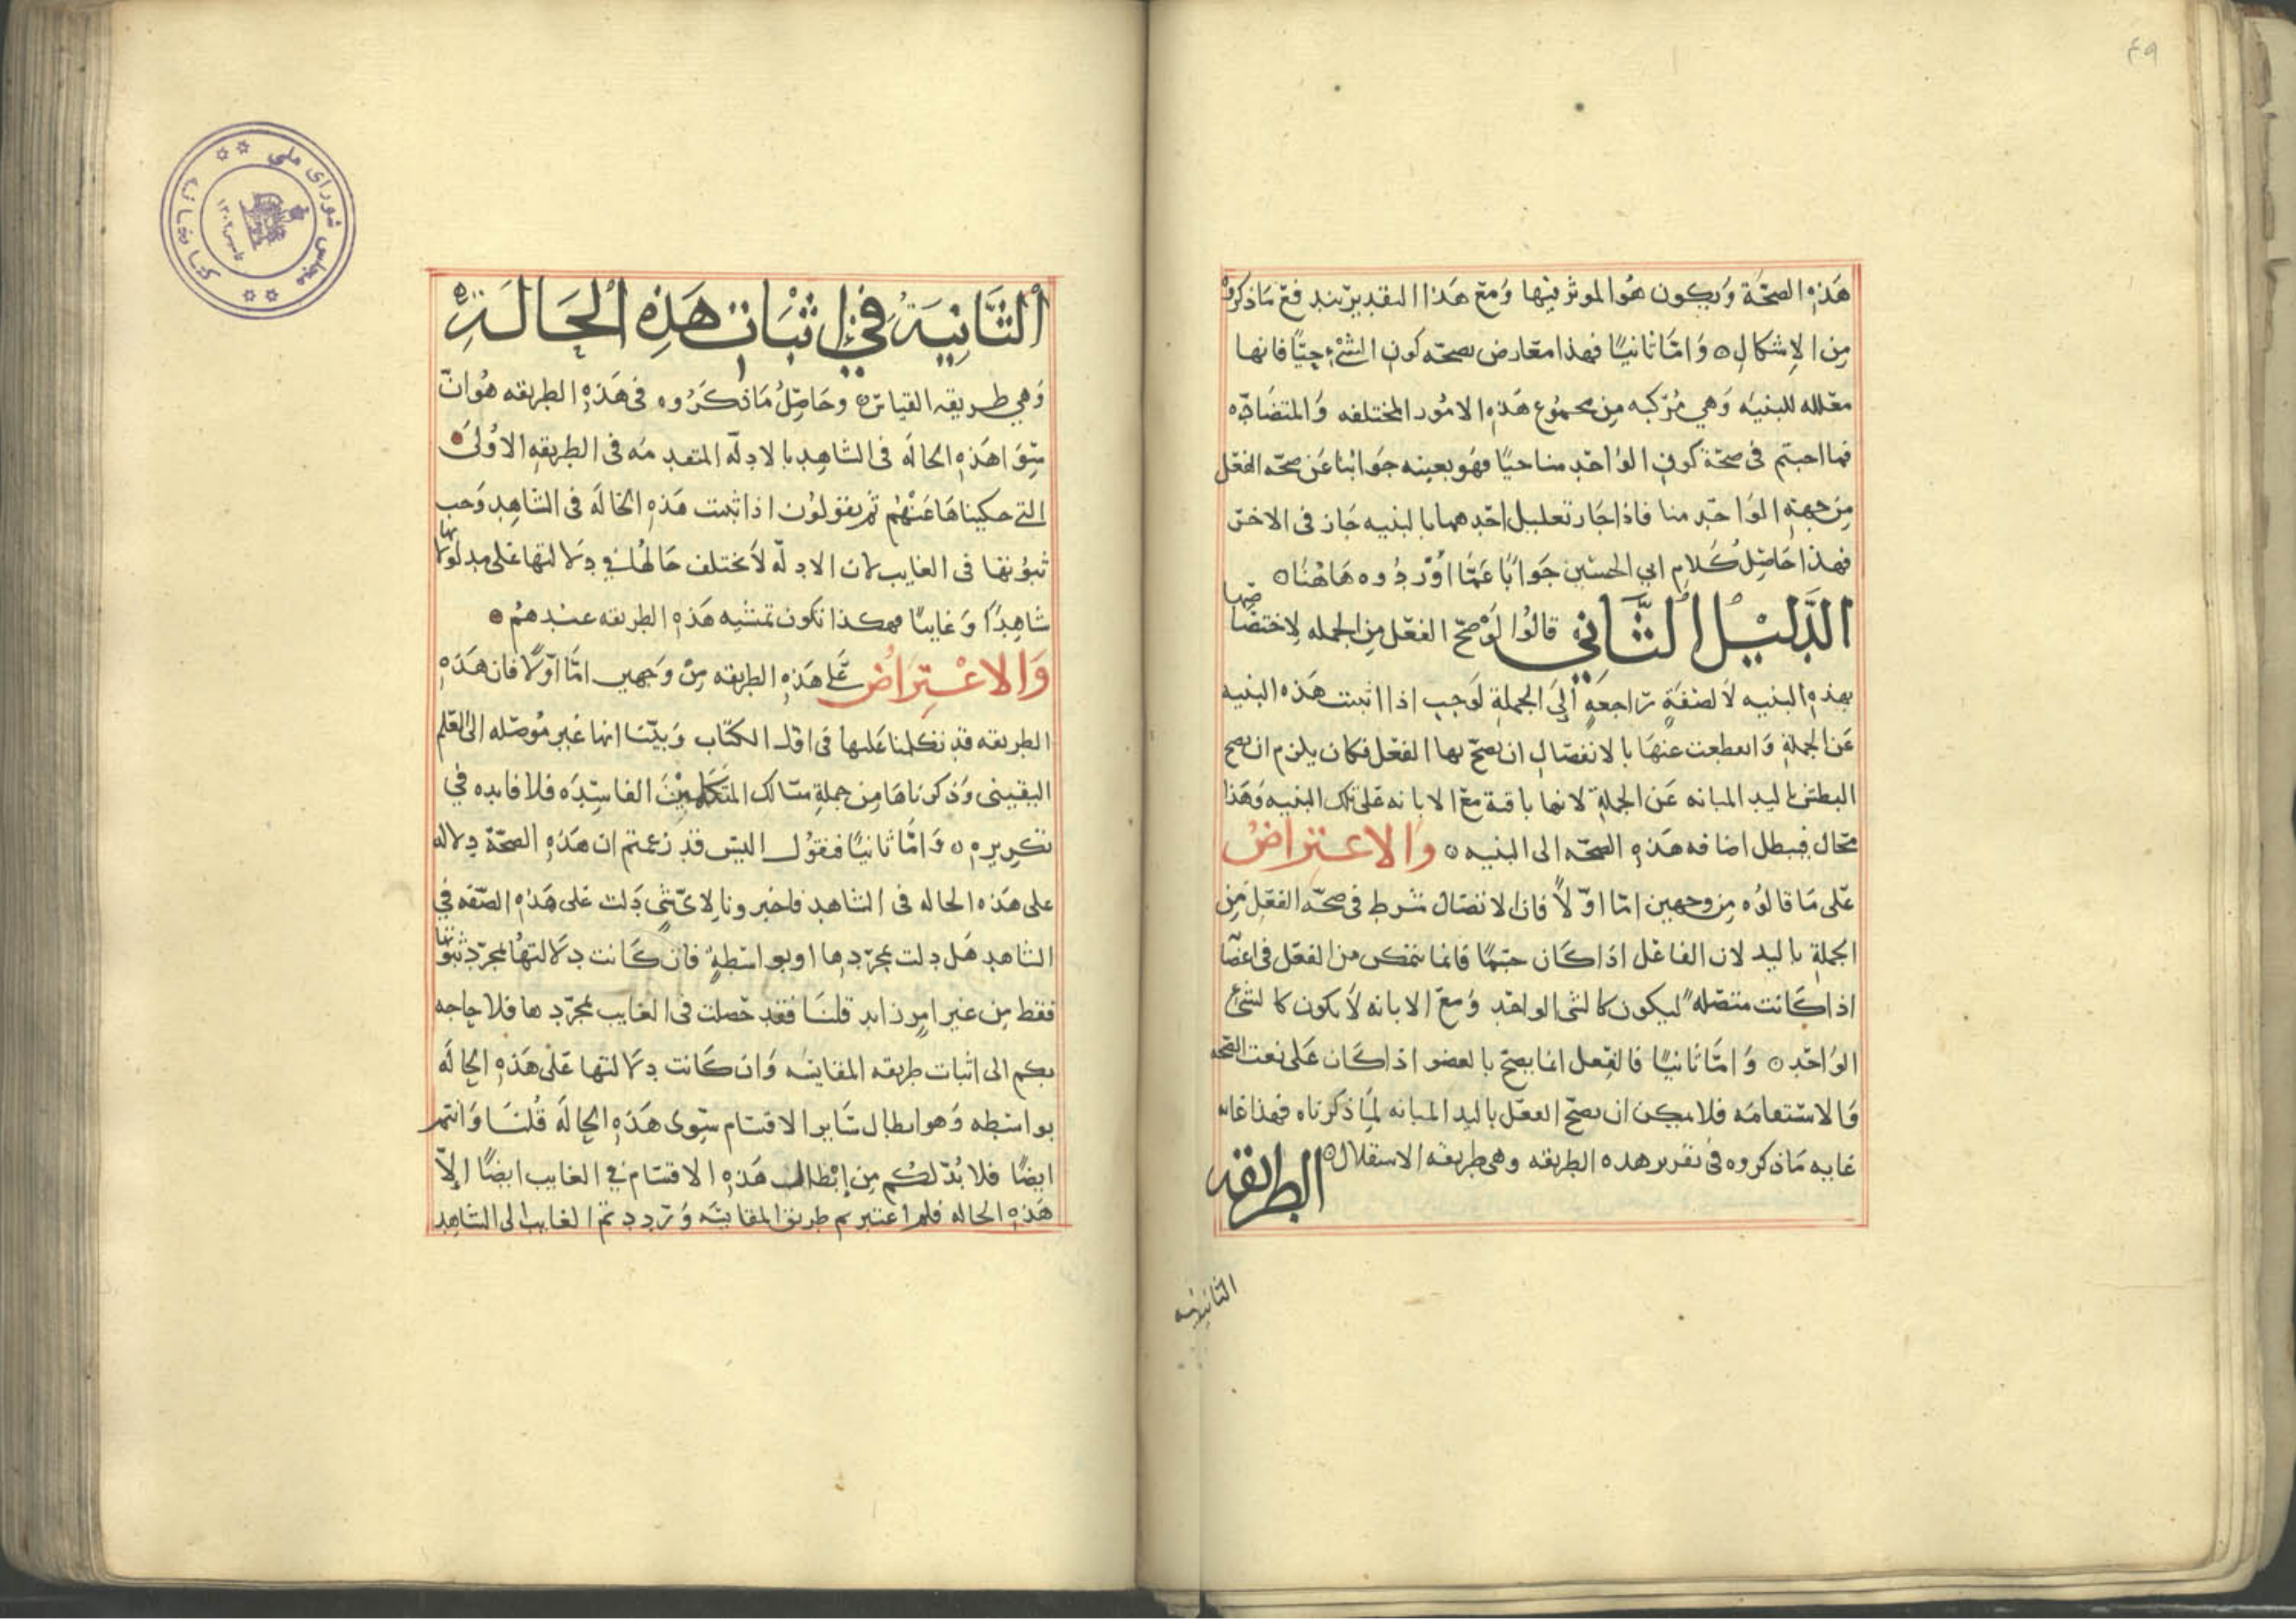 ٤٩
هَذِهِ الصحّة وَيكون هُوَ الموثر فيها وَمع هَذا التقدير يندفع مَا ذكروهُ
مِن الإشكال ه وَامَّا ثانيًا فهذا معَارض بصحّه كون الشئ حيًّا فانها
معَلله للبنيَه وَهي مُركبه مِن مجمُوع هَذِهِ الامُور المختلفه وَالمتضَادّه
فما اجبتم فى صحّة كون الوَاحَد منا حيًا فهُو بعينه جَوابنا عَن صحّه الفعَل
مِن جهةِ الوَاحد منا فاذا جَاز تعليل احَدهما بالبنيه جَاز فى الاخر
فهذا حَاصِلُ كَلامِ ابي الحسَين جَوابًا عَمَّا اوُرَدُوه هَاهُنا ه
الدَّليْلُ الثَّانِي قالوُا لَوْ صحّ الفعَل مِن الجمله لاختصَاصها
بهذِهِ البنيه لاَ لصفَةٍ رَاجعَةٍ الَى الجملةِ لوَجب اذا اثبتت هَذه البنيه
عَن الجملةِ وَانقطعت عنهَا بالانفصَال ان يصحّ بها الفعَل فكان يلزم ان يصح
البطش باليد المبانه عَن الجملةِ لانها باقية معَ الابانه عَلى تلك البنيه وَهَذا
محَال فبطل اضافه هَذهِ الصحّه الى البنيه ه وَالاعتراضُ
عَلى مَا قالوُه مِن وجهين امّا اوّلاً فان الاتصَال شرط فى صحّه الفعَل مِن
الجملةِ باليد لان الفاعَل اذا كَان جسمًا فانما يتمكن من الفعَل فى اعضَا
اذا كَانت متصَله ليكون كالشى الواحَد وَمعَ الابانه لاَ يكون كالشئ
الوَاحَد ه وَامَّا ثانيًا فالفِعل انما يصحّ بالعضو اذا كَان عَلى نعت الصحّه
وَالاسْتقامَه فلا يمكن ان يصحّ الفعَل باليد المبانه لِمَا ذكرناه فهذا غايه
غايه مَا ذكروه فى تقرير هذه الطريقه وهى طريقه الاستقلال ه الطريقه
الثانيه
الثَّانِيَةُ فِي اثْبَاتِ هَذِهِ الْحَالَةِ ه
وَهي طريقه القياس ه وحَاصِلُ مَا ذكَرُوه فى هَذهِ الطريقه هُوَ انّ
سَوَّا هَذهِ الحالَة فى الشاهِد بالادلّه المتقدمَه فى الطريقهِ الاوُلى
التى حكيناهَا عَنْهُم ثم يقولوُن اذا ثبتت هَذهِ الحالَه فى الشاهِد وَجب
ثبوُتها فى الغايب لان الادلّه لاَ يختلف حَالهُا في دِلالتها عَلى مدلولاتها
شاهِدًا وَغايبًا فهكذا تكون تمشيه هَذهِ الطريقه عندهُم
وَالاعْتِرَاضُ عَلى هَذهِ الطريقه مِنْ وَجهين امَّا اوّلاً فان هَذهِ
الطريقه قد تكلمنا عَليها فى اوّل الكتَاب وَبيّنا انها غير مُوصَله الى العَلم
اليقينى وَذكرناهَا مِن جملةِ مسَالك المتكلمِيْن الفاسِدَه فلا فايده في
تكريرهِ ه وَامَّا ثانيًا فنقوُل اليسَ قد زعمتم ان هَذهِ الصحّة دِلاله
على هَذه الحاله فى الشاهد فاخبرونا لاِىّ شىٍ دَلت عَلى هَذهِ الصّفه في
الشاهد هَل دلت بمجرّدِها او بواسْطهٍ فان كَانت دِلالتهُا بمجرّد ثبوتها
فقط مِن غير امرٍ زايد قلنَا فقد حَصلت فى الغايب بمجرّدها فلا حاجه
بكم الى اثبات طريقه المقايسَه وَان كَانت دِلالتها عَلى هَذهِ الحالَه
بواسْطه وَهو ابطال سَاير الاقسَام سِوى هَذهِ الحالَه قُلنَا وَانتم
ايضًا فلا بُدّ لكم مِن إِبْطال هَذهِ الاقسَام في الغايب ايضًا الاّ
هَذهِ الحاله فلم اعتبرتم طريق المقايسَه وَرَددتم الغايب الى الشاهِد
كتابخانه مجلس شورای ملی
تاسیس ۱۳۰۲